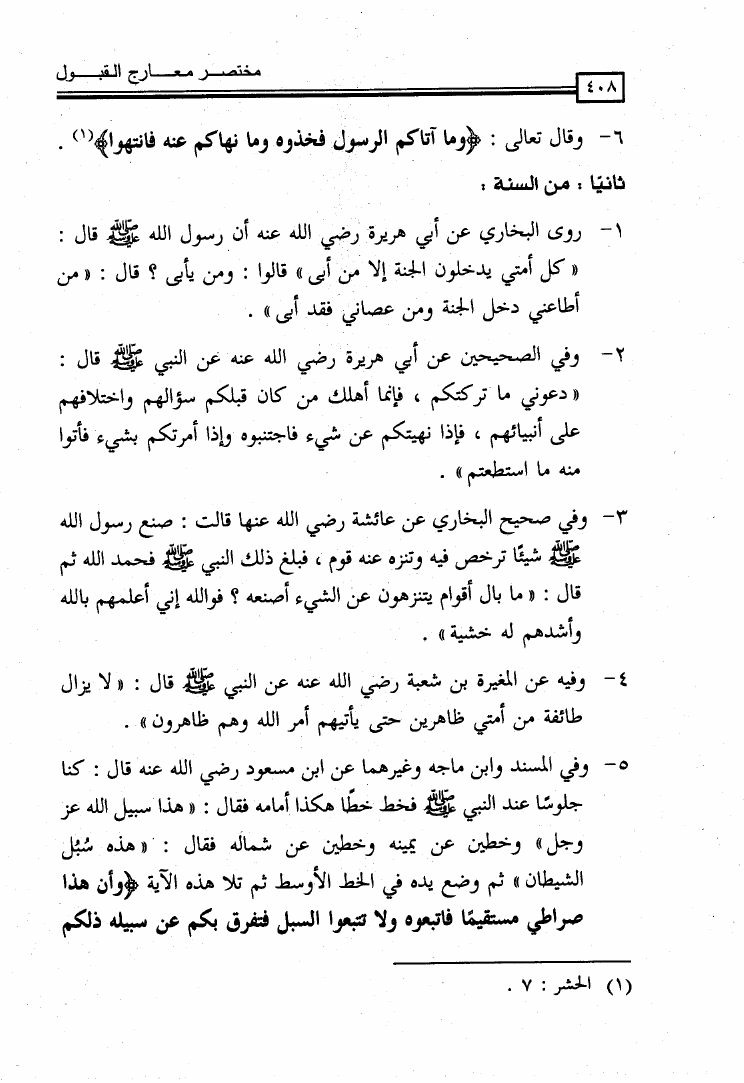 مختصر معارج القبول
٤٠٨
٦- وقال تعالى : ﴿وما آتاكم الرسول فخذوه وما نهاكم عنه فانتهوا﴾(١) .
ثانيًا : من السنة :
١- روى البخاري عن أبي هريرة رضي الله عنه أن رسول الله ﷺ قال :
« كل أمتي يدخلون الجنة إلا من أبى » قالوا : ومن يأبى ؟ قال : « من
أطاعني دخل الجنة ومن عصاني فقد أبى » .
٢- وفي الصحيحين عن أبي هريرة رضي الله عنه عن النبي ﷺ قال :
« دعوني ما تركتكم ، فإنما أهلك من كان قبلكم سؤالهم واختلافهم
على أنبيائهم ، فإذا نهيتكم عن شيء فاجتنبوه وإذا أمرتكم بشيء فأتوا
منه ما استطعتم » .
٣- وفي صحيح البخاري عن عائشة رضي الله عنها قالت : صنع رسول الله
ﷺ شيئًا ترخص فيه وتنزه عنه قوم ، فبلغ ذلك النبي ﷺ فحمد الله ثم
قال : « ما بال أقوام يتنزهون عن الشيء أصنعه ؟ فوالله إني أعلمهم بالله
وأشدهم له خشية » .
٤- وفيه عن المغيرة بن شعبة رضي الله عنه عن النبي ﷺ قال : « لا يزال
طائفة من أمتي ظاهرين حتى يأتيهم أمر الله وهم ظاهرون » .
٥- وفي المسند وابن ماجه وغيرهما عن ابن مسعود رضي الله عنه قال : كنا
جلوسًا عند النبي ﷺ فخط خطًا هكذا أمامه فقال : « هذا سبيل الله عز
وجل » وخطين عن يمينه وخطين عن شماله فقال : « هذه سُبُل
الشيطان » ثم وضع يده في الخط الأوسط ثم تلا هذه الآية ﴿وأن هذا
صراطي مستقيمًا فاتبعوه ولا تتبعوا السبل فتفرق بكم عن سبيله ذلكم
(١) الحشر : ٧ .